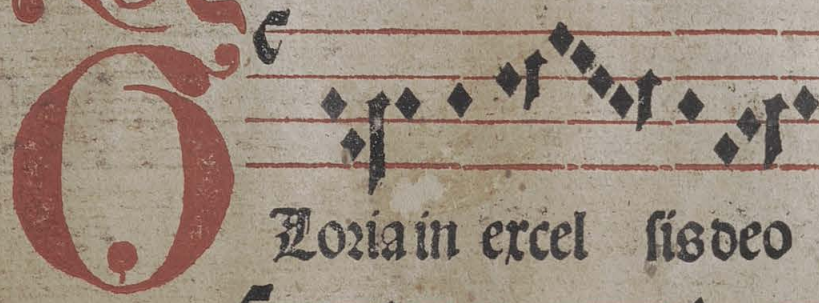 GLoria in excel sis deo